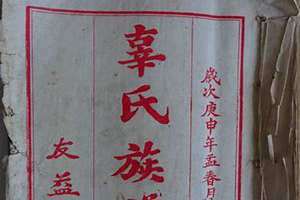 歲次庚申年孟春月
辜氏族
友益